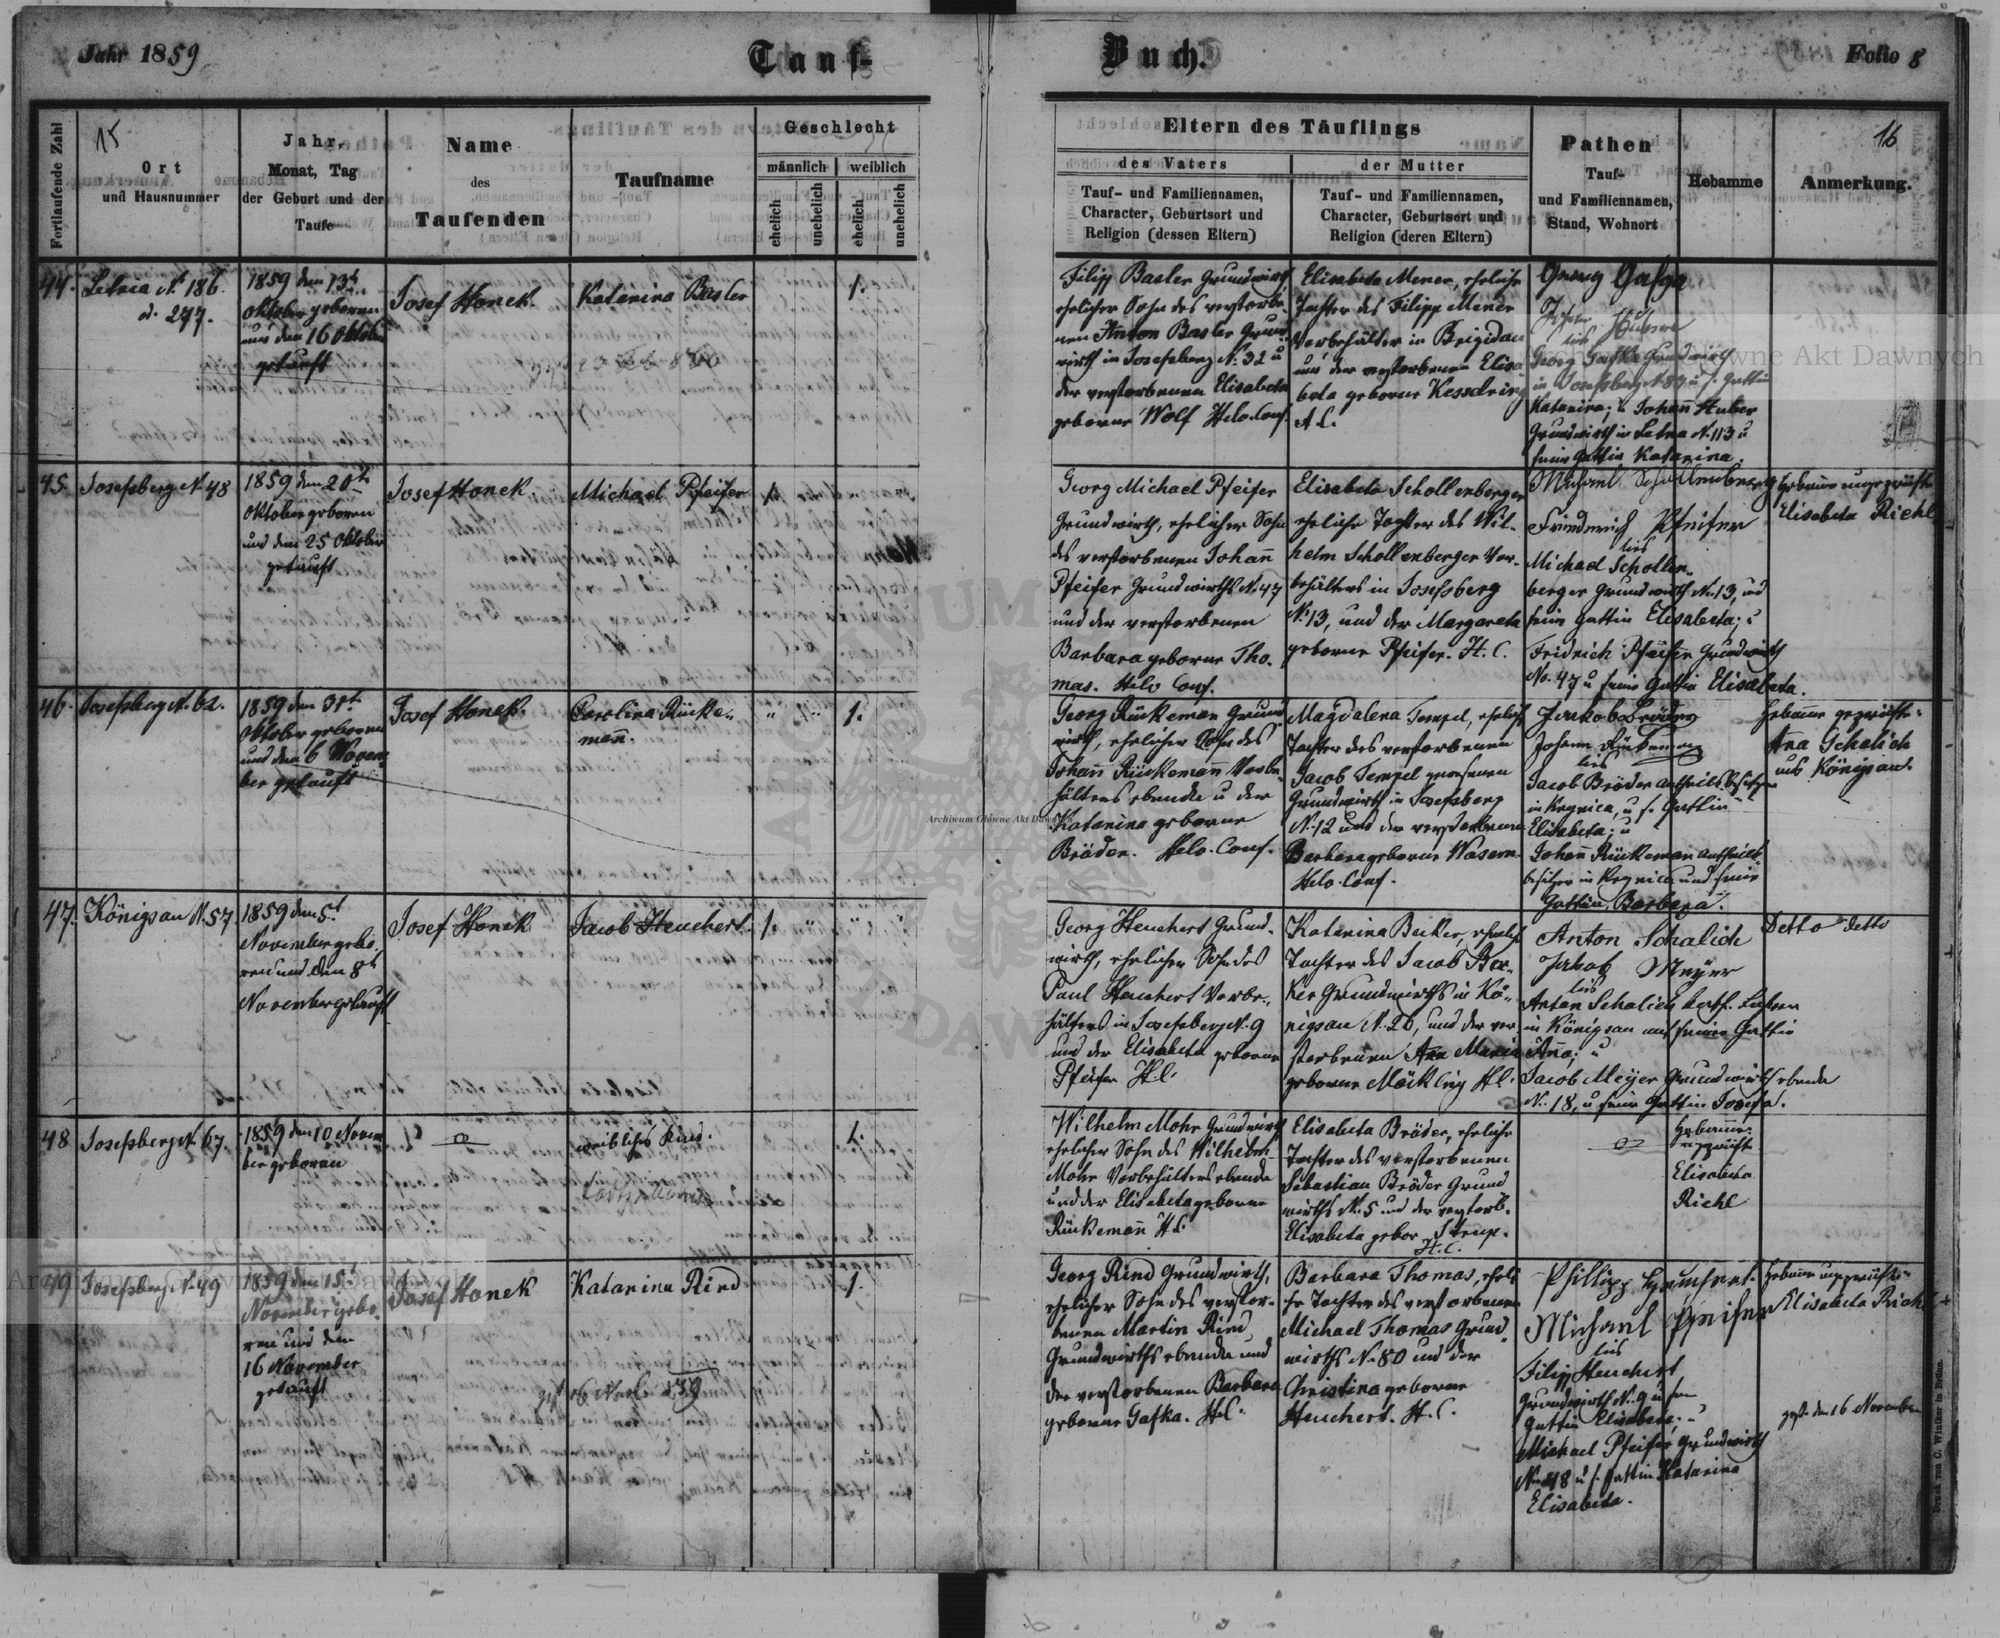 Jahr 1859
Tauf-
Buch.
Folio 8
15
16
Fortlaufende Zahl
Ort
und Hausnummer
Jahr,
Monat, Tag
der Geburt und der
Taufe
Name
des
Taufenden
Taufname
Geschlecht
männlich
weiblich
ehelich
unehelich
ehelich
unehelich
Eltern des Täuflings
des Vaters
der Mutter
Tauf- und Familiennamen,
Character, Geburtsort und
Religion (dessen Eltern)
Tauf- und Familiennamen,
Character, Geburtsort und
Religion (deren Eltern)
Pathen
Tauf-
und Familiennamen,
Stand, Wohnort
Hebamme
Anmerkung.
44.
Letnia N. 186
d. 277.
1859 den 13t
Oktober geboren
und den 16 Oktober
getauft
Josef Honek.
Katarina Basler
1.
Filipp Basler Grundwirth
ehelicher Sohn des verstorbe-
nen Anton Basler Grund
wirth in Josefsberg N. 32 u
der verstorbenen Elisabeta
geborne Wolf Helv. Conf.
Elisabeta Mener, eheliche
Tochter des Filipp Mener
Vorbehälter in Brigidau
und der verstorbenen Elisa
beta geborne Kesselring
A C.
Georg Gafga
Huber
lies
Georg Gafka Grundwirth
in Josefsberg N. 89 u s. Gattin
Katarina; u Johann Huber
Grundwirth in Letnia N. 113 u
seine Gattin Katarina.
45.
Josefsberg N. 48
1859 den 20t
Oktober geboren
und den 25 Oktober
getauft
Josef Honek
Michael Pfeifer
1.
Georg Michael Pfeifer
Grundwirth, ehelicher Sohn
des verstorbenen Johann
Pfeifer Grundwirths N. 47
und der verstorbenen
Barbara geborne Tho-
mas. Helv. Conf.
Elisabeta Schollenberger
eheliche Tochter des Wil-
helm Schollenberger Vor-
behälters in Josefsberg
N. 13, und der Margareta
geborne Pfeifer. H. C.
Michael Schollenberger
Friederich Pfeifer
lies
Michael Schollen-
berger Grundwirth N. 13, und
seine Gattin Elisabeta; u
Fridrich Pfeifer Grundwirth
No. 47 u seine Gattin Elisabeta.
Hebame ungeprüfte
Elisabeta Riehl
46.
Josefsberg N. 62.
1859 den 31t
Oktober geboren
und den 6 Novem
ber getauft
Josef Honek.
Carolina Rücke-
mann.
1.
Georg Rückeman Grund
wirth, ehelicher Sohn des
Johann Rückemann Vorbe-
hälters ebenda u der
Katarina geborne
Bröder. Helv. Conf.
Magdalena Tempel, ehelich
Tochter des verstorbenen
Jacob Tempel gewesenen
Grundwirth in Josefsberg
N. 12 und der verstorbenen
Barbara geborne Wasem.
Helv. Conf.
Jakob Bröder
Johann Rückeman
lies
Jacob Bröder Antheils besitzer
in Krynica, u s. Gattin
Elisabeta; u
Johann Rückeman Antheils
besitzer in Krynica und seine
Gattin, Barbara.
Hebame geprüfte
Ana Schalich
aus Königsau.
47.
Königsau N. 57
1859 den 5t
November gebo-
ren und den 8t
November getauft
Josef Honek
Jacob Heuchert.
1.
Georg Heuchert Grund-
wirth, ehelicher Sohn des
Paul Heuchert Vorbe-
hälters in Josefsberg N. 9
und der Elisabeta geborne
Pfeifer H.C.
Katarina Becker, ehelich
Tochter des Jacob Bec-
ker Grundwirths in Kö-
nigsau N. 26, und der ver
storbenen Ana Maria
geborne Möckling H.C.
Anton Schalich
Jakob Meyer
lies
Anton Schalich kath. Lehrer
in Königsau und seine Gattin
Anna; u
Jacob Meyer Grundwirth ebenda
N. 18, u seine Gattin Josefa.
Detto detto
48
Josefsberg N. 67.
1859 den 10 Novem
ber geboren
weibliches Kind.
1.
Wilhelm Mohr Grundwirth
ehelicher Sohn des Wilhelm
Mohr Vorbehälters ebenda
und der Elisabeta geborne
Rückemann H.C.
Elisabeta Bröder, eheliche
Tochter des verstorbenen
Sebastian Bröder Grund
wirths N. 5 und der verstorb.
Elisabeta gebor
H.C.
Hebamme
ungeprüfte
Elisabeta
Riehl
49
Josefsberg N. 49
1859 den 15t
November gebo-
ren und den
16 November
getauft
Josef Honek
Katarina Rind
1.
Georg Rind Grundwirth,
ehelicher Sohn des verstor-
benen Martin Rind
Grundwirths ebenda und
der verstorbenen Barbara
geborne Gafka. H.C.
Barbara Thomas, eheli
che Tochter des verstorbenen
Michael Thomas Grund
wirths N. 80 und der
Christina geborne
Heuchert. H. C.
Phillipp Heuchert
Michael Pfeifer
lies
Filipp Heuchert
Grundwirth N. 9 u sein
Gattin Elisabeta; u
Michael Pfeifer Grundwirth
N. 48 u s. Gattin Katarina
Elisabeta.
Hebame ungeprüfte
Elisabeta Riehl
gest. den 16 November
Druck von C. Winiker in Brünn.
Archiwum Główne Akt Dawnych